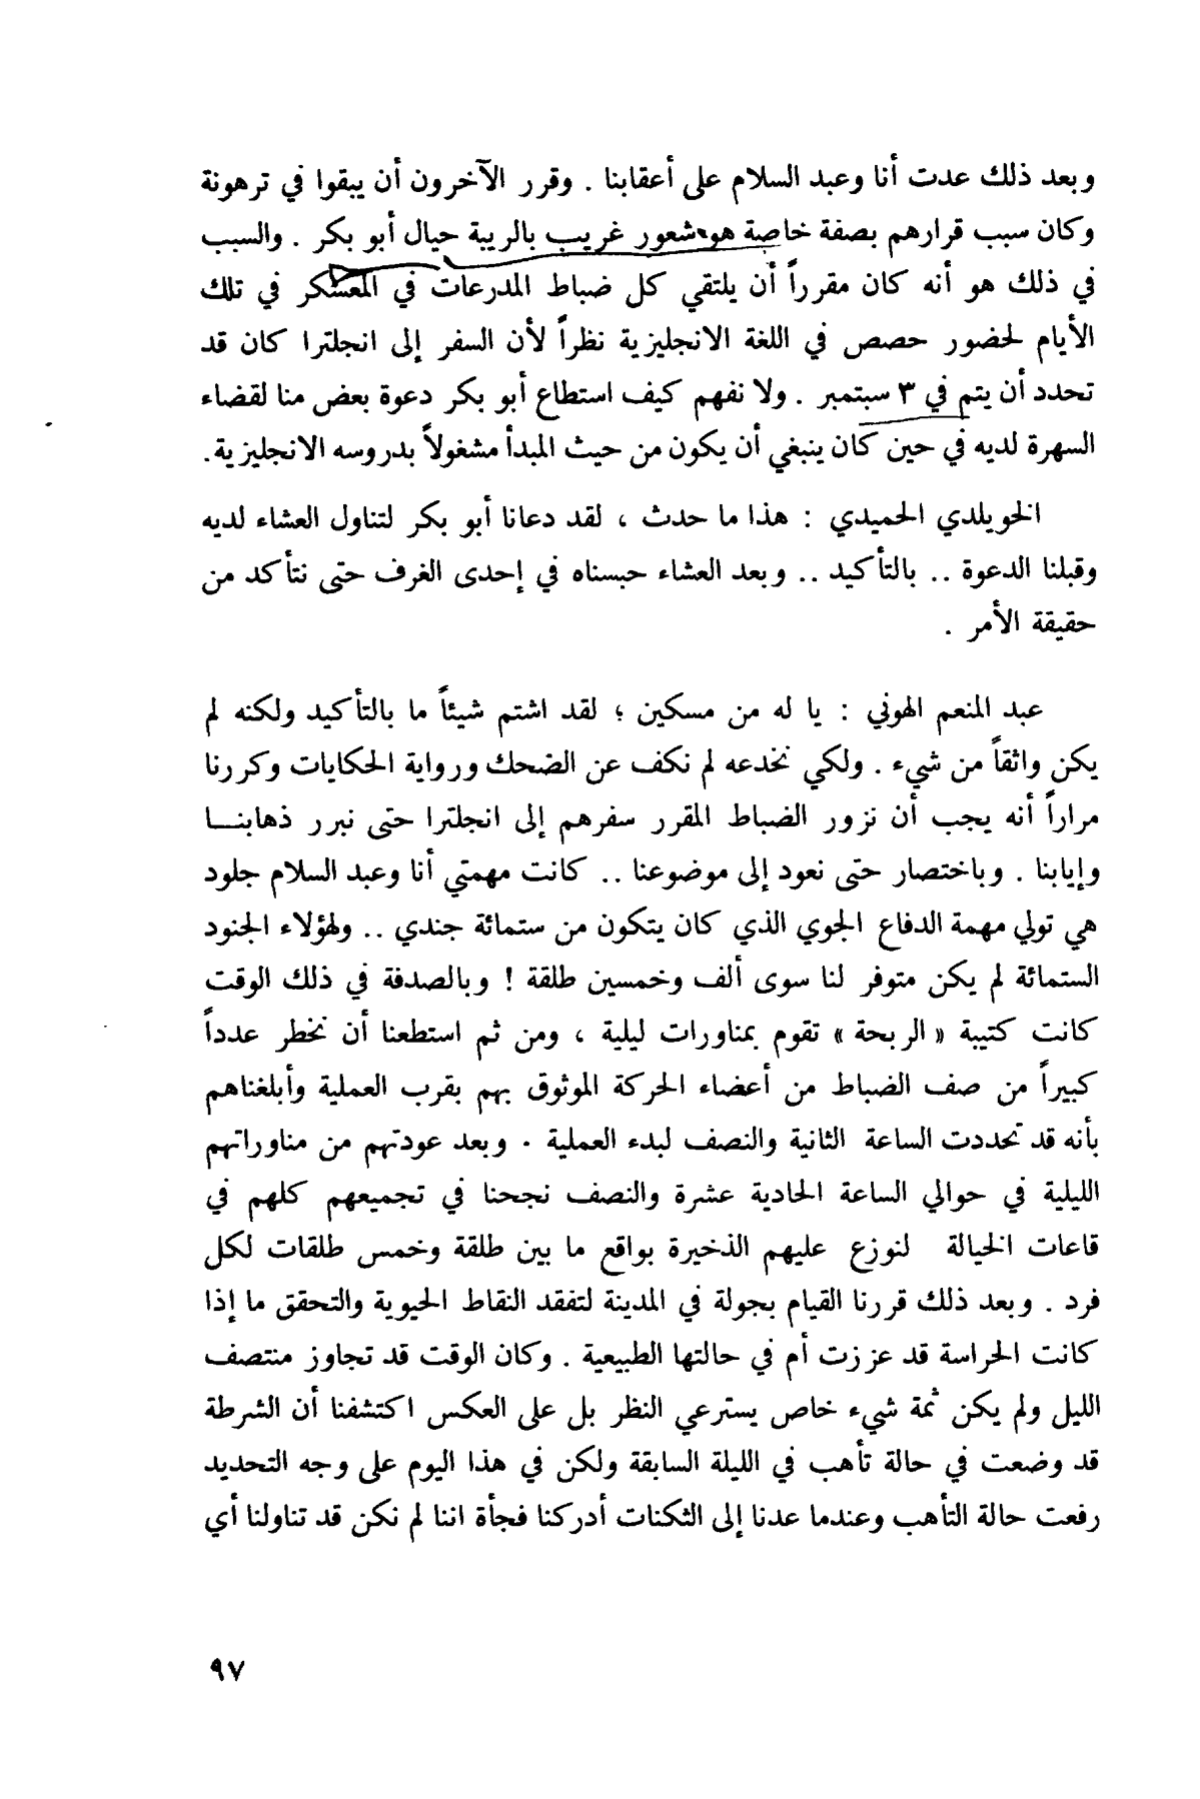 وبعد ذلك عدت أنا وعبد السلام على أعقابنا . وقرر الآخرون أن يبقوا في ترهونة
وكان سبب قرارهم بصفة خاصة هو شعور غريب بالريبة حيال أبو بكر . والسبب
في ذلك هو أنه كان مقرراً أن يلتقي كل ضباط المدرعات في المعسكر في تلك
الأيام لحضور حصص في اللغة الانجليزية نظراً لأن السفر إلى انجلترا كان قد
تحدد أن يتم في ٣ سبتمبر . ولا نفهم كيف استطاع أبو بكر دعوة بعض منا لقضاء
السهرة لديه في حين كان ينبغي أن يكون من حيث المبدأ مشغولاً بدروسه الانجليزية.
الخويلدي الحميدي : هذا ما حدث ، لقد دعانا أبو بكر لتناول العشاء لديه
وقبلنا الدعوة .. بالتأكيد .. وبعد العشاء حبسناه في إحدى الغرف حتى نتأكد من
حقيقة الأمر .
عبد المنعم الهوني : يا له من مسكين ؛ لقد اشتم شيئاً ما بالتأكيد ولكنه لم
يكن واثقاً من شيء . ولكي نخدعه لم نكف عن الضحك ورواية الحكايات وكررنا
مراراً أنه يجب أن نزور الضباط المقرر سفرهم إلى انجلترا حتى نبرر ذهابنــا
وإيابنا . وباختصار حتى نعود إلى موضوعنا .. كانت مهمتي أنا وعبد السلام جلود
هي تولي مهمة الدفاع الجوي الذي كان يتكون من ستمائة جندي .. ولهؤلاء الجنود
الستمائة لم يكن متوفر لنا سوى ألف وخمسين طلقة ! وبالصدفة في ذلك الوقت
كانت كتيبة « الربحة » تقوم بمناورات ليلية ، ومن ثم استطعنا أن نخطر عدداً
كبيراً من صف الضباط من أعضاء الحركة الموثوق بهم بقرب العملية وأبلغناهم
بأنه قد تحددت الساعة الثانية والنصف لبدء العملية . وبعد عودتهم من مناوراتهم
الليلية في حوالي الساعة الحادية عشرة والنصف نجحنا في تجميعهم كلهم في
قاعات الخيالة لنوزع عليهم الذخيرة بواقع ما بين طلقة وخمس طلقات لكل
فرد . وبعد ذلك قررنا القيام بجولة في المدينة لتفقد النقاط الحيوية والتحقق ما إذا
كانت الحراسة قد عززت أم في حالتها الطبيعية . وكان الوقت قد تجاوز منتصف
الليل ولم يكن ثمة شيء خاص يسترعي النظر بل على العكس اكتشفنا أن الشرطة
قد وضعت في حالة تأهب في الليلة السابقة ولكن في هذا اليوم على وجه التحديد
رفعت حالة التأهب وعندما عدنا إلى الثكنات أدركنا فجأة اننا لم نكن قد تناولنا أي
٩٧